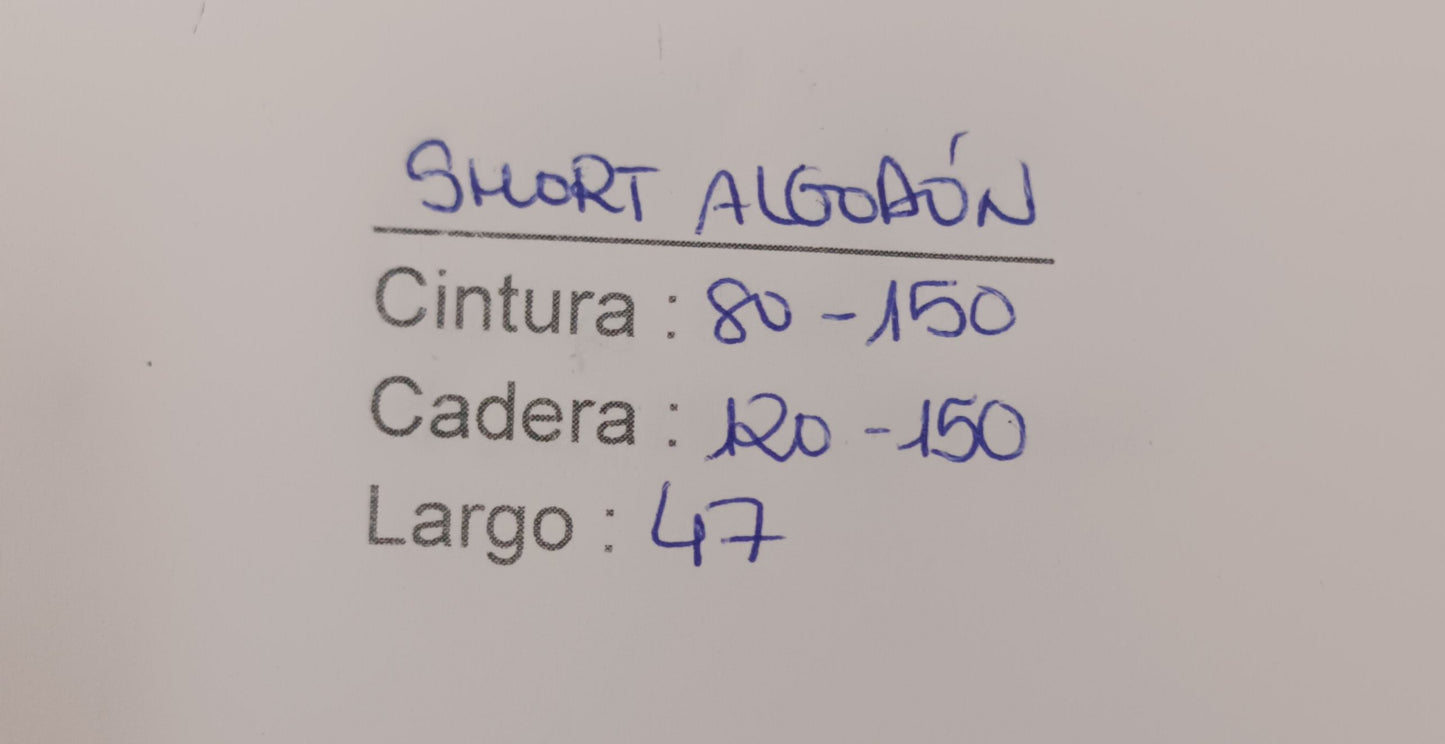 SHORT ALGODÓN
Cintura : 80 - 150
Cadera : 120 - 150
Largo : 47